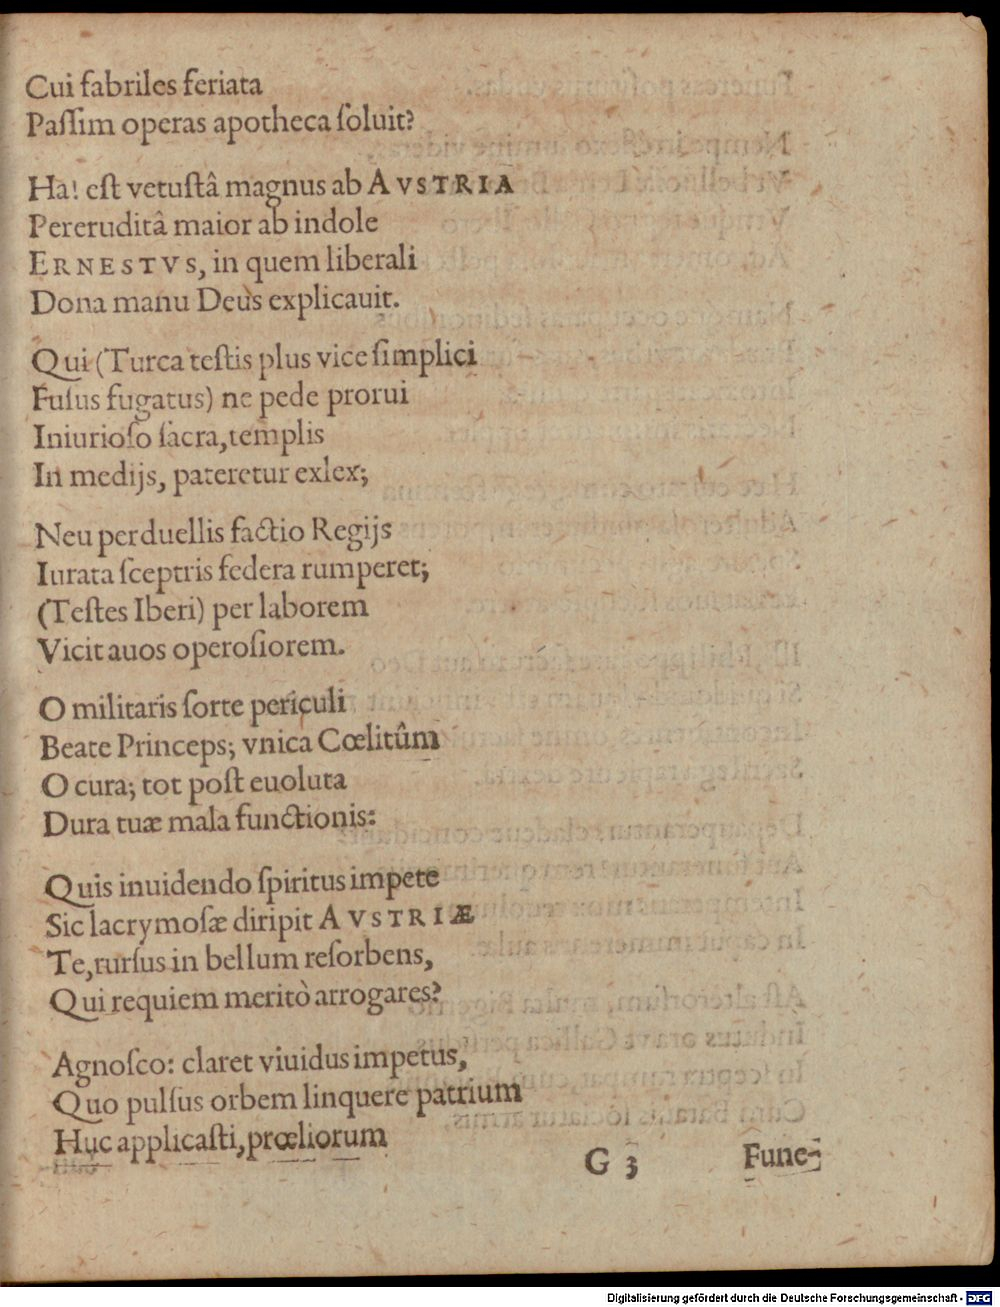 Cui fabriles feriata
Paſſim operas apotheca ſoluit?
Ha! eſt vetuſtâ magnus ab AVSTRIA
Pererudıtâ maior ab indole
ERNESTVS, in quem liberali
Dona manu Deus explicauit.
Qui (Turca teſtis plus vice ſimplici
Fuſus fugatus) ne pede prorui
Iniurioſo ſacra, templis
In medijs, pateretur exlex;
Neu perduellis factio Regijs
Iurata ſceptris federa rumperet;
(Teſtes Iberi) per laborem
Vicit auos operoſiorem.
O militaris ſorte periculi
Beate Princeps; vnica Cœlitûm
O cura; tot poſt euoluta
Dura tuæ mala functionis:
Quis inuidendo ſpiritus impete
Sic lacrymoſæ diripit AVSTRIÆ
Te, rurſus in bellum reſorbens,
Qui requiem meritò arrogares?
Agnoſco: claret viuidus impetus,
Quo pulſus orbem linquere patrium
Huc applicaſti, prœliorum
G 3 Fune-
Digitalisierung gefördert durch die Deutsche Forschungsgemeinschaft - DFG